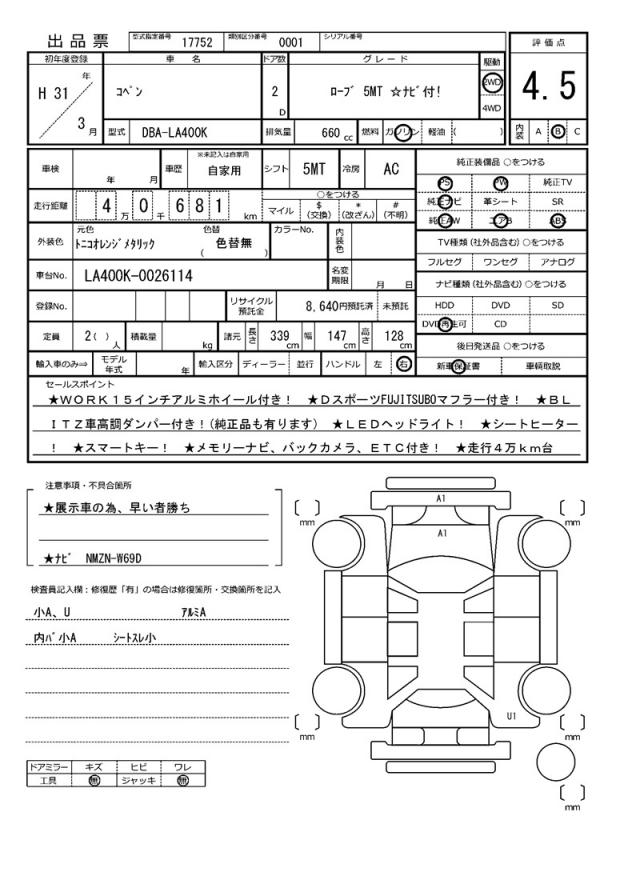 出 品 票 型式指定番号 17752 類別区分番号 0001 シリアル番号
初年度登録 車 名 ドア数 グレード 駆動 評価点
H 31 年 3 月 コペン 2 D ローブ 5MT ☆ナビ付! 2WD 4WD 4.5
型式 DBA-LA400K 排気量 660 cc 燃料 ガソリン 軽油 ( ) 内装 A B C
車検 年 月 車歴 ※未記入は自家用 自家用 シフト 5MT 冷房 AC 純正装備品 ○をつける
PS PW 純正TV
走行距離 4 万 0 千 6 8 1 km ○をつける 純正ナビ 革シート SR
マイル $ (交換) * (改ざん) # (不明) 純正AW エアB ABS
外装色 元色 トニコオレンジメタリック 色替 ( 色替無 ) カラーNo. 内装色 TV種類 (社外品含む) ○をつける
フルセグ ワンセグ アナログ
車台No. LA400K-0026114 名変期限 月 日 ナビ種類 (社外品含む) ○をつける
登録No. リサイクル預託金 8,640円預託済 未預託 HDD DVD SD
DVD再生可 CD
定員 2 ( ) 人 積載量 kg 諸元 長さ 339 cm 幅 147 cm 高さ 128 cm 後日発送品 ○をつける
輸入車のみ⇒ モデル年式 年 輸入区分 ディーラー 並行 ハンドル 左 右 新車保証書 車輌取説
セールスポイント
★WORK15インチアルミホイール付き! ★DスポーツFUJITSUBOマフラー付き! ★BL
ITZ車高調ダンパー付き!(純正品も有ります) ★LEDヘッドライト! ★シートヒーター
! ★スマートキー! ★メモリーナビ、バックカメラ、ETC付き! ★走行4万km台
注意事項・不具合箇所
★展示車の為、早い者勝ち
★ナビ NMZN-W69D
検査員記入欄:修復歴「有」の場合は修復箇所・交換箇所を記入
小A、U アルミA
内バ小A シートスレ小
ドアミラー キズ ヒビ ワレ
工具 無 ジャッキ 無
A1
A1
U1
[ ] mm
[ ] mm
[ ] mm
[ ] mm
[ ] mm